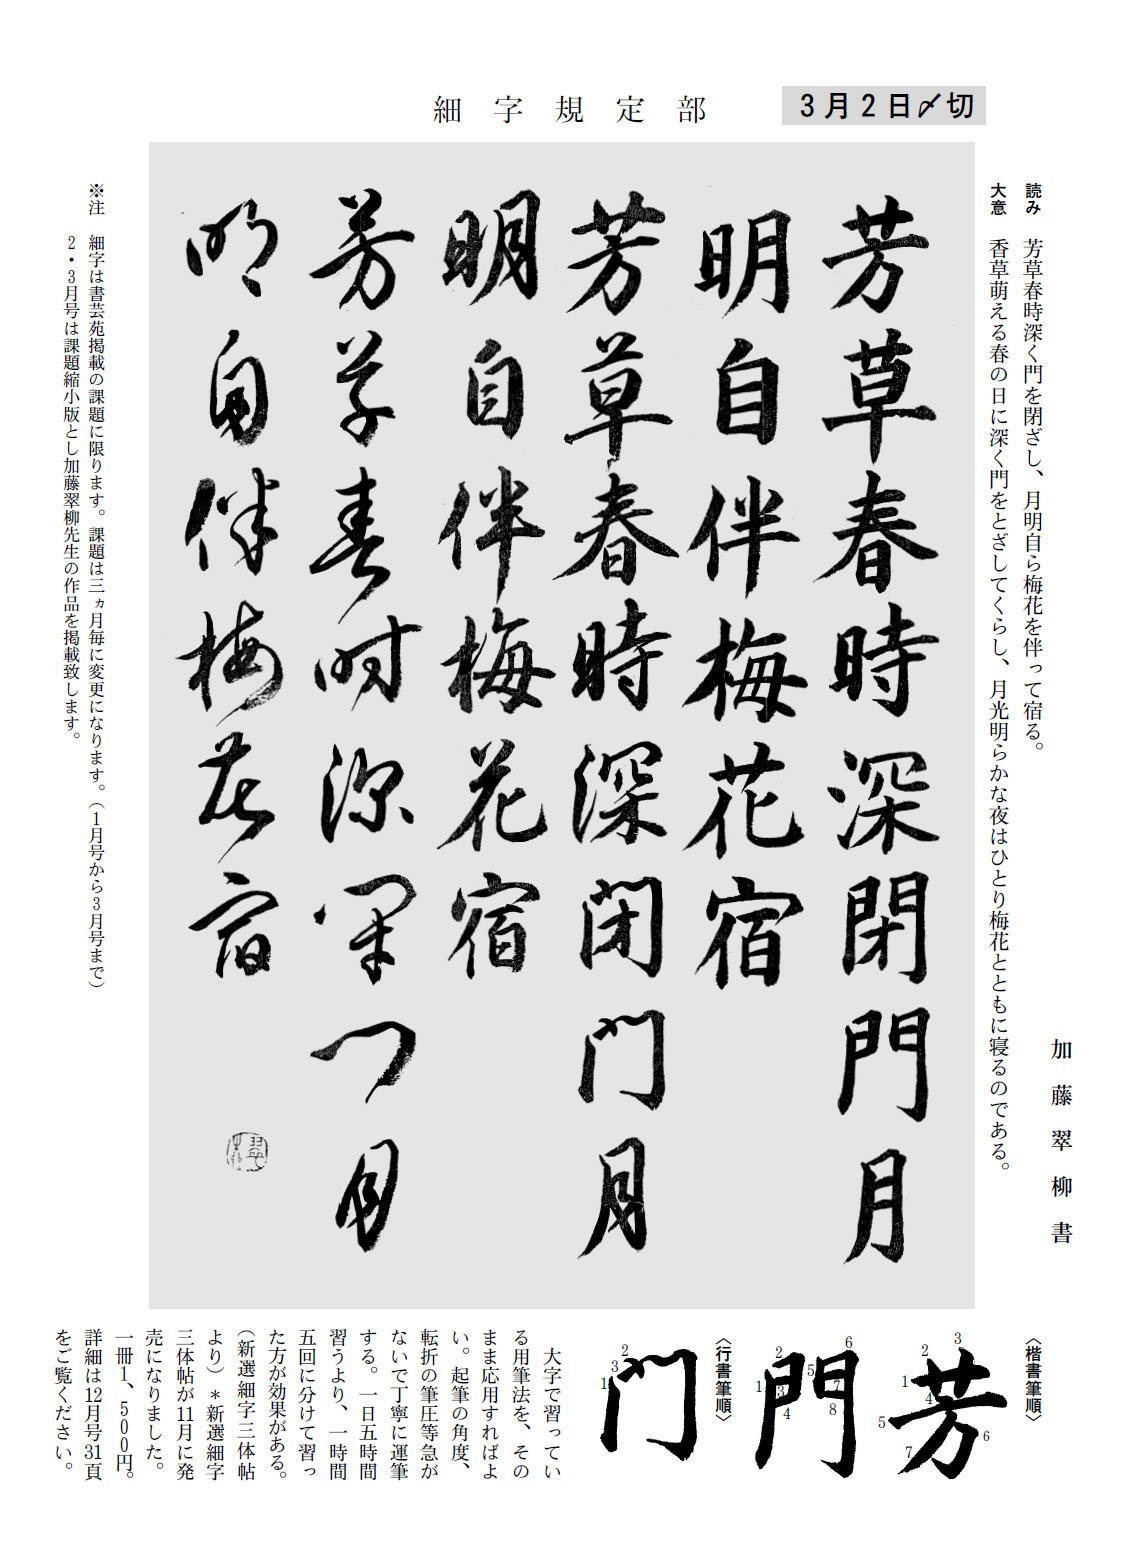 細字規定部
3月2日〆切
加藤翠柳書
読み　芳草春時深く門を閉ざし、月明自ら梅花を伴って宿る。
大意　香草萌える春の日に深く門をとざしてくらし、月光明らかな夜はひとり梅花とともに寝るのである。
芳草春時深閉門月
明自伴梅花宿
芳草春時深閉門月
明自伴梅花宿
芳草春時深閉門月
明自伴梅花宿
※注　細字は書芸苑掲載の課題に限ります。課題は三ヵ月毎に変更になります。（1月号から3月号まで）
2・3月号は課題縮小版とし加藤翠柳先生の作品を掲載致します。
〈楷書筆順〉
芳
1
2
3
4
5
6
7
門
1
2
3
4
5
6
7
8
〈行書筆順〉
门
1
2
3
大字で習ってい
る用筆法を、その
まま応用すればよ
い。起筆の角度、
転折の筆圧等急が
ないで丁寧に運筆
する。一日五時間
習うより、一時間
五回に分けて習っ
た方が効果がある。
（新選細字三体帖
より）＊新選細字
三体帖が11月に発
売になりました。
一冊1、500円。
詳細は12月号31頁
をご覧ください。